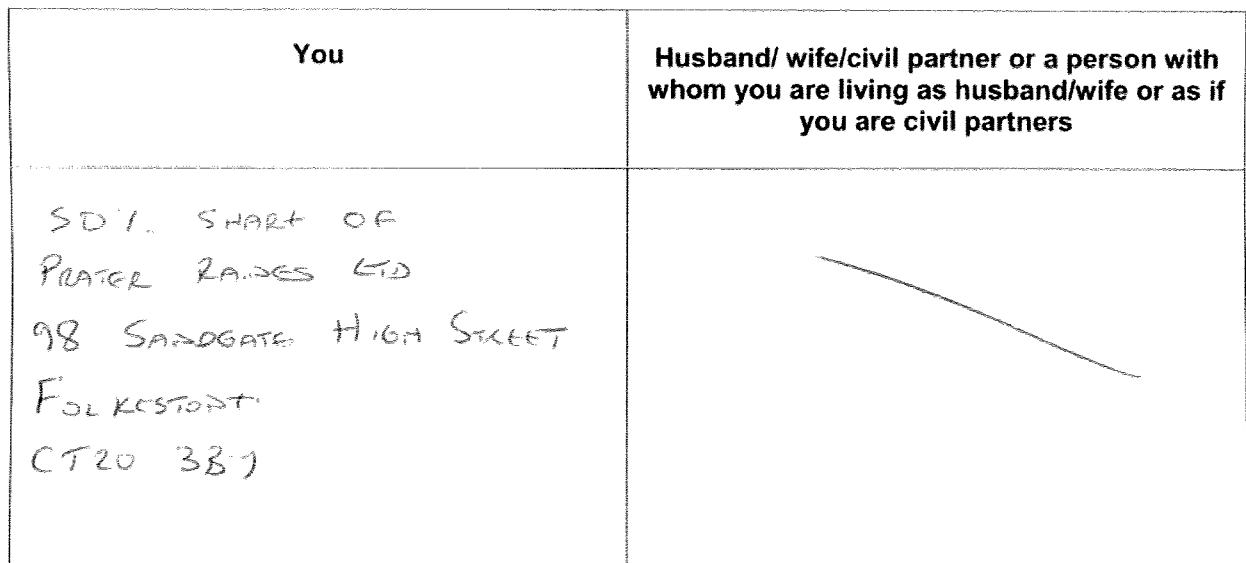 You
Husband/ wife/civil partner or a person with
whom you are living as husband/wife or as if
you are civil partners
50%. SHARE OF
PRATER RAINES LTD
98 SANDGATE HIGH STREET
FOLKESTONE
CT20 3BY